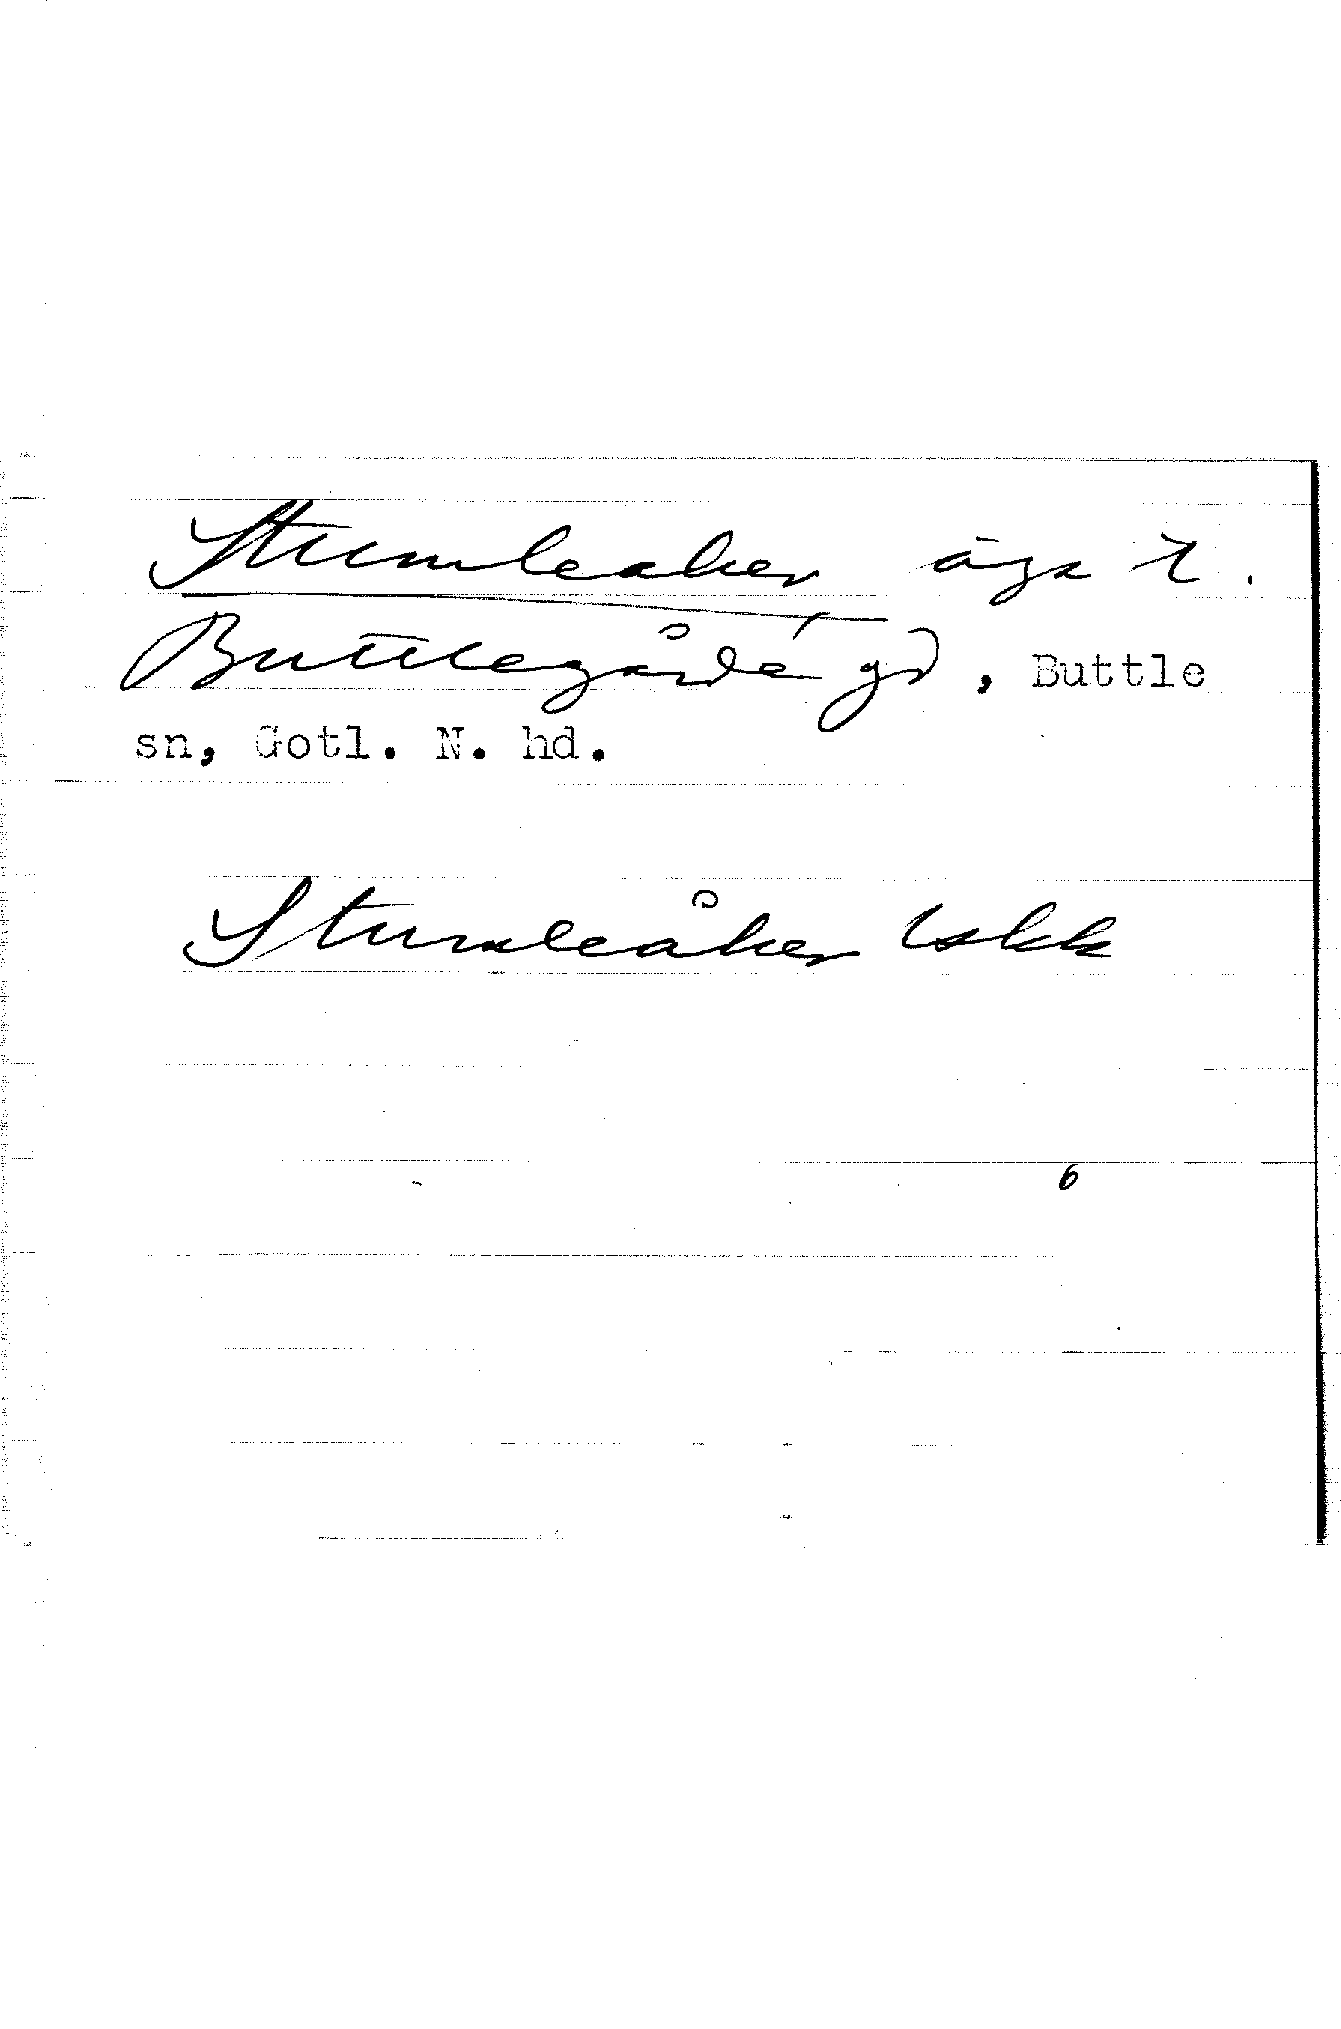 Stumleaker äga t.
Buttlegårde gd, Buttle
sn, Gotl. N. hd.
Stumleåker Lskk
6